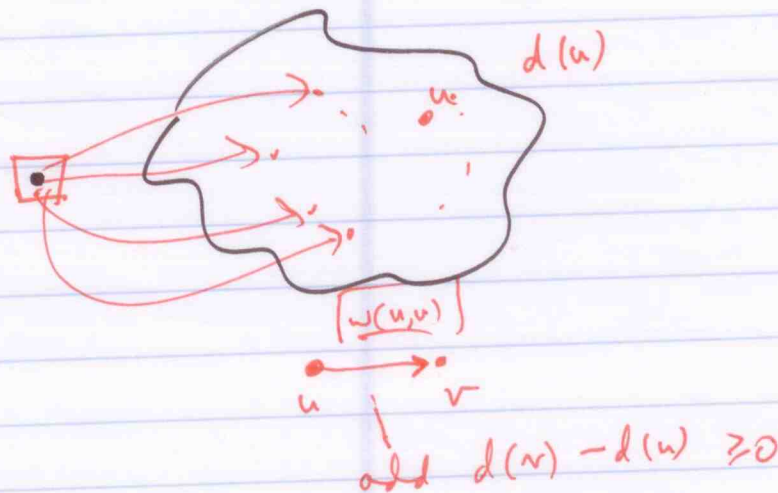 d(u)
u
w(u,v)
u v
add d(v) - d(u) ≥0